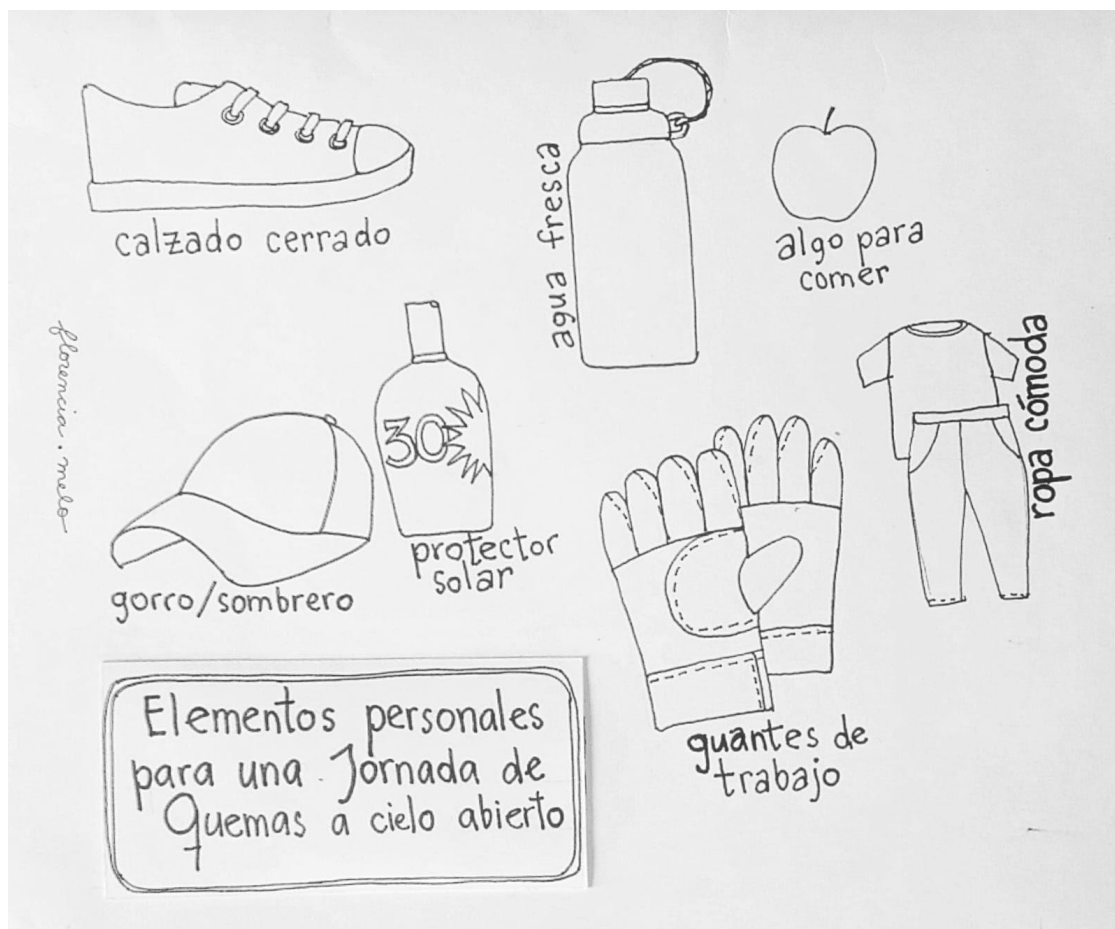 calzado cerrado
agua fresca
algo para
comer
florencia.melo
30
protector
solar
gorro/sombrero
ropa cómoda
guantes de
trabajo
Elementos personales
para una Jornada de
Quemas a cielo abierto